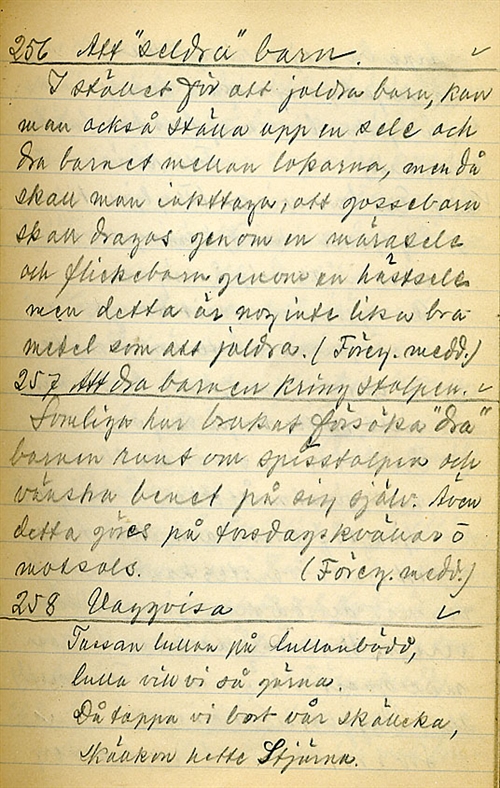 256 Att "seldra" barn. ✓
I stället för att joldra barn, kan
man också ställa upp en sele och
dra barnet mellan lokarna, men då
skall man iakttaga, att gossebarn
skall dragas genom en märasele
och flickebarn genom en hästsele
men detta är nog inte lika bra
medel som att joldra. (Föreg. medd.)
257 Att dra barnen kring stolpen. ✓
Somliga har brukat försöka "dra"
barnen runt om spisstolpen och
vänstra benet på sig själv. Även
detta göres på torsdagskvällar o
motsols. (Föreg. medd.)
258 Vaggvisa ✓
Tussan lullan på lullanbädd,
lulla vill vi så gärna.
Då tappa vi bort vår skällcka,
Skällkon hette Stjärna.